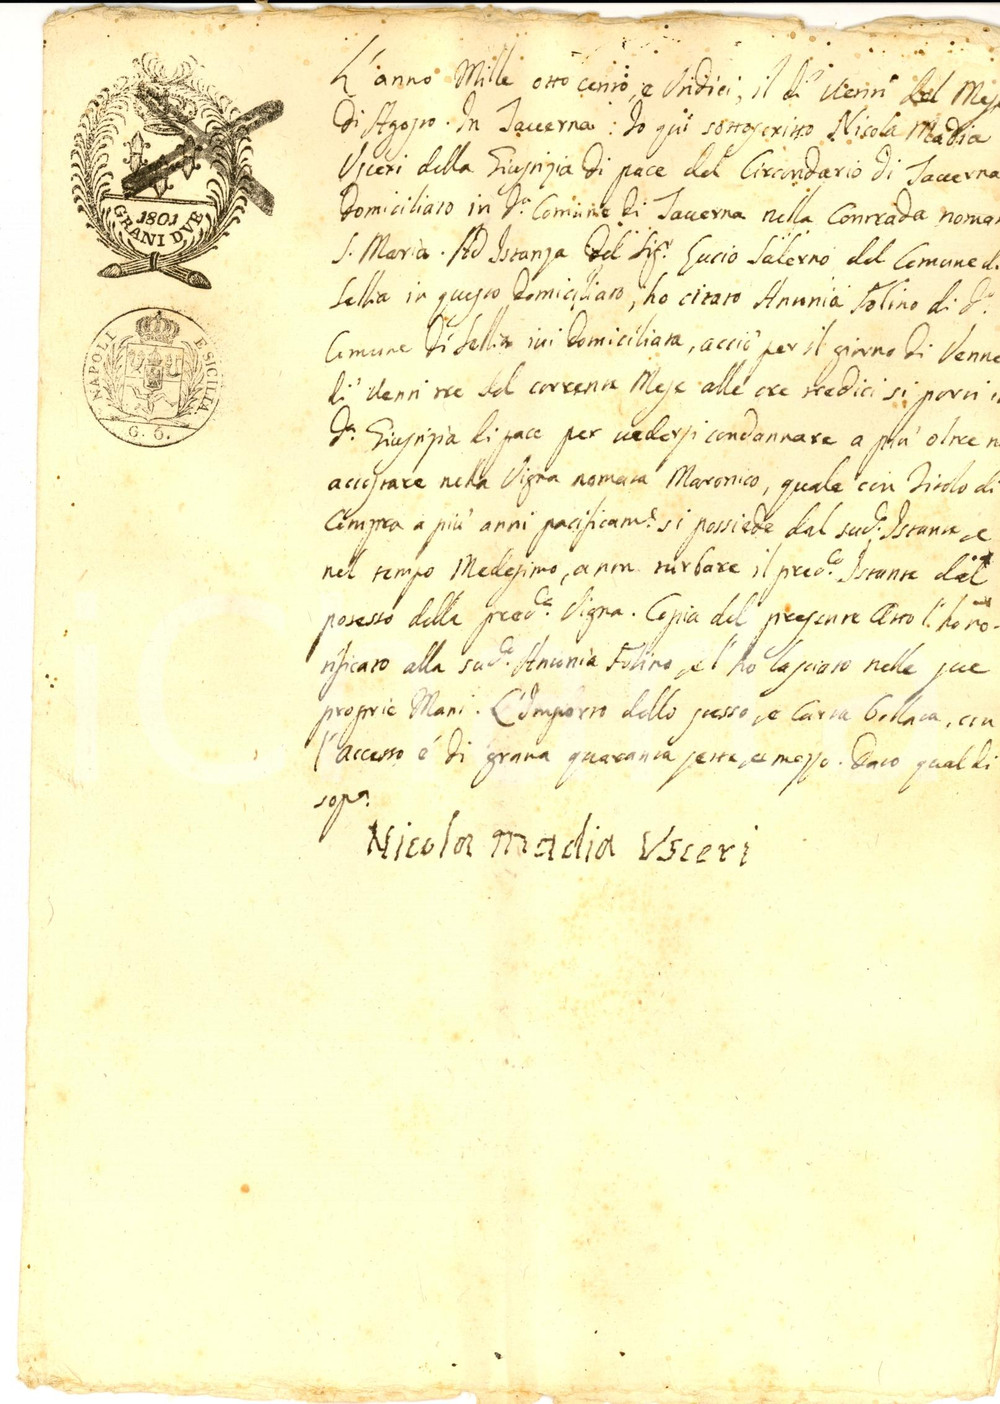 1801
GRANI DVE
NAPOLI E SICILIA
G. 6.
L'anno Mille otto cento, e Undici, il dì venti del Mese
di Agosto. In Taverna: Io quì sottoscritto Nicola Madia
Usceri della Giustizia di pace del Circondario di Taverna
domiciliato in d.ª Comune di Taverna nella Contrada nomat
S. Maria. Ad Istanza del Sig.r Lucio Salerno del Comune di
Sellia in questo domiciliato, ho citato Antonia Folino di d.º
Comune di Sellia ivi domiciliata, acciò per il giorno di Vener
dì venti tre del corrente Mese alle ore tredici si porti i
d.ª Giustizia di pace per vedersi condannare a più oltre n
accostare nella Vigna nomata Maronico, quale con titolo di
Compra a più anni pacificam.e si possiede dal sud.º Istante, e
nel tempo Medesimo, a non turbare il pred.º Istante dal
possesso della pred.ª Vigna. Copia del presente Atto l'ho no-
tificato alla sud.ª Antonia Folino, e l'ho lasciato nelle sue
proprie Mani. L'Importo dello stesso, e Carta bollata, con
l'accesso è di grana quaranta sette, e mezzo. Dato qual di
sop.ª
Nicola Madia Usceri